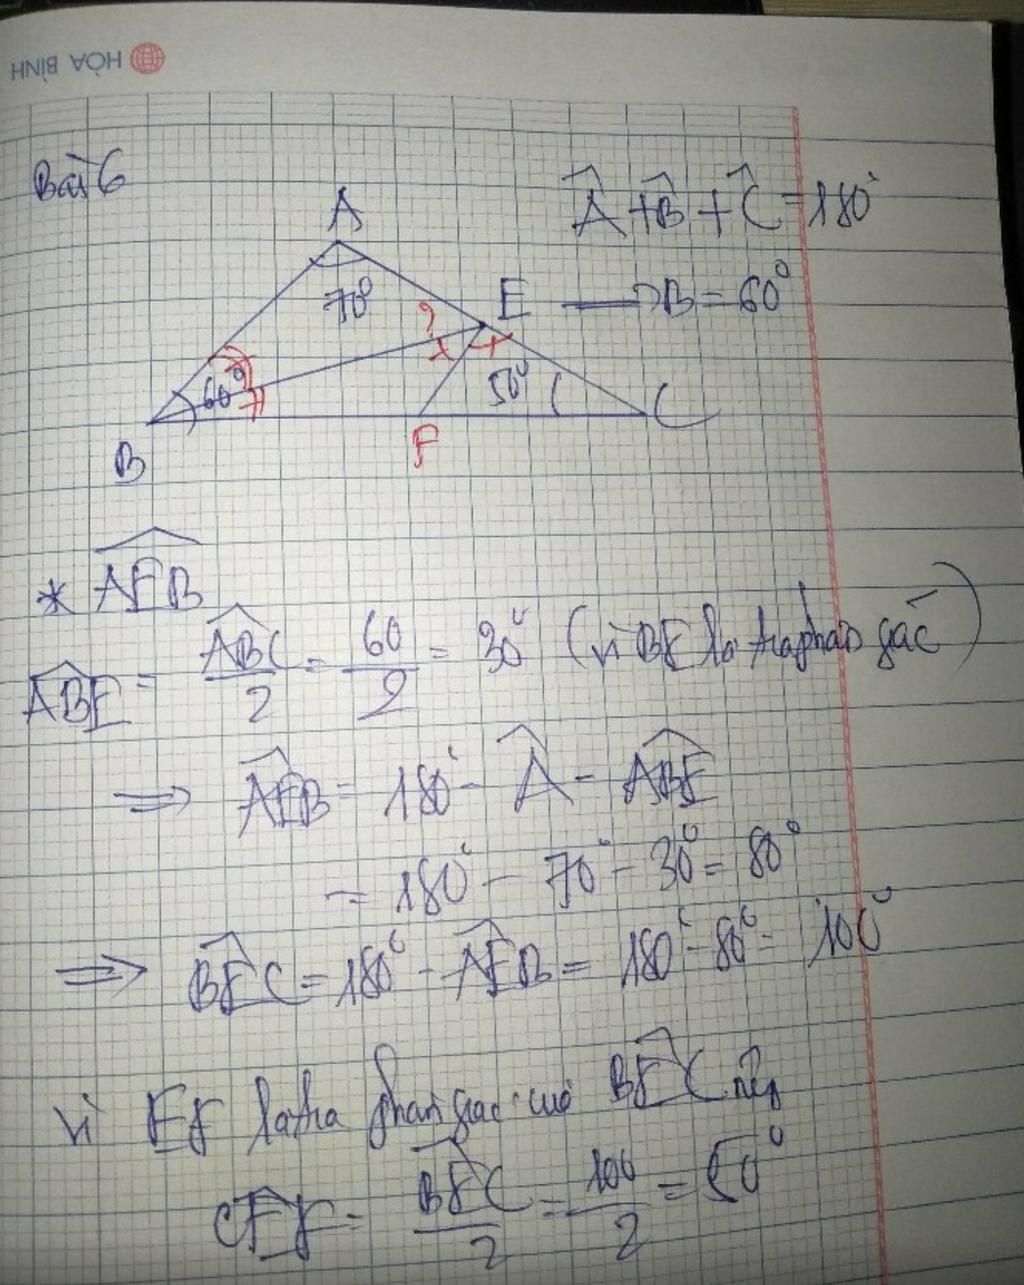 HÒA BÌNH
Bài 6
Â + B̂ + Ĉ = 180°
A
70°
E → B = 60°
?
x x
60° 50° C
B F
* AEB
ABE = ABC/2 = 60/2 = 30° (vì BE là tia phân giác)
⇒ AEB = 180° - Â - ABE
= 180° - 70° - 30° = 80°
⇒ BEC = 180° - AEB = 180° - 80° = 100°
Vì EF là tia phân giác của BEC nên
CEF = BEC/2 = 100/2 = 50°